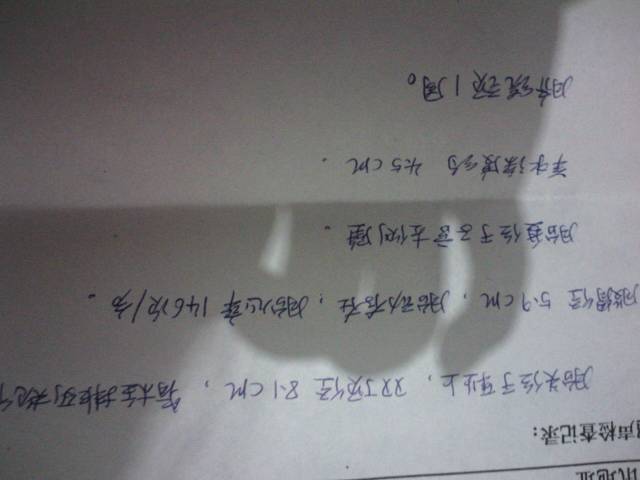 讯地址
声检查记录：
胎头位于耻上，双顶径 8.1 cm，脊柱排列规
股骨径 5.9 cm，胎动存在，胎心率 146次/分.
胎盘位于子宫左侧壁.
羊水深度约 4.5 cm.
脐绕颈1周。